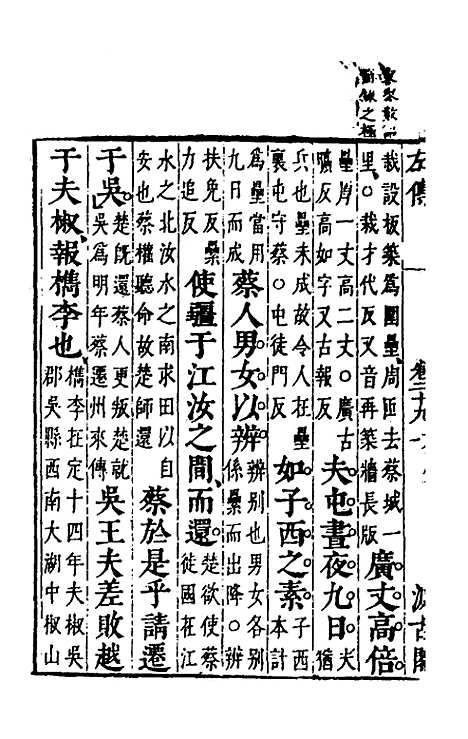 左傳
卷二十九
汲古閣
栽設板築爲圍壘周匝去蔡城一
里○栽才代反又音再築牆長版
廣丈高倍
壘岸一丈高二丈○廣古
曠反高如字又古報反
夫屯晝夜九日
夫
猶
兵也壘未成故令人在壘
裏屯守蔡○屯徒門反
如子西之素
子西
本計
爲壘當用
九日而成
蔡人男女以辨
辨別也男女各別
係纍而出降○辨
扶免反纍
力追反
使疆于江汝之間而還
楚欲使蔡
徙國在江
水之北汝水之南求田以自
安也蔡權聽命故楚師還
蔡於是乎請遷
于吳
楚旣還蔡人更叛楚就
吳爲明年蔡遷州來傳
吳王夫差敗越
于夫椒報檇李也
檇李在定十四年夫椒吳
郡吳縣西南大湖中椒山